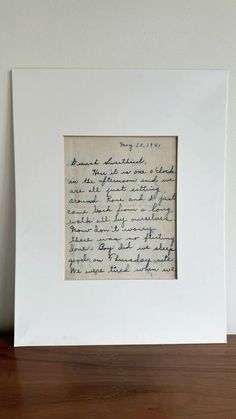 May 25, 1941
Dearest Sweetheart,
Here it is one o'clock
in the afternoon and we
are all just sitting
around. Rose and I just
came back from a long
walk all by ourselves.
Now don't worry
there was no flirting
done. Boy did we sleep
good on Thursday nite
We were tired when we